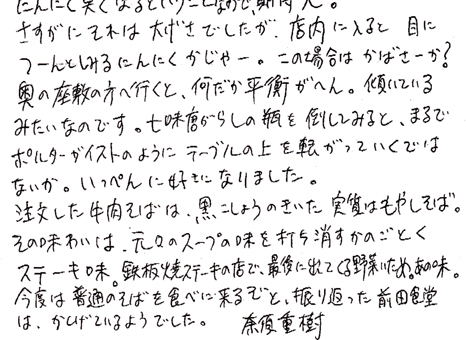 にんにく臭くなるということなので、期待大。
さすがにそれは大げさでしたが、店内に入ると 目に
つーんとしみるにんにくかじゃー。この場合はかばさーか?
奥の座敷の方へ行くと、何だか平衡がへん。傾いている
みたいなのです。七味唐からしの瓶を倒してみると、まるで
ポルターガイストのようにテーブルの上を転がっていくでは
ないか。いっぺんに好きになりました。
注文した牛肉そばは、黒こしょうのきいた 実質はもやしそば。
その味わいは、元々のスープの味を打ち消すかのごとく
ステーキ味。鉄板焼ステーキの店で、最後に出てくる野菜いため。あの味。
今度は普通のそばを食べに来るぞと、振り返った 前田食堂
は、かしげているようでした。 奈須重樹